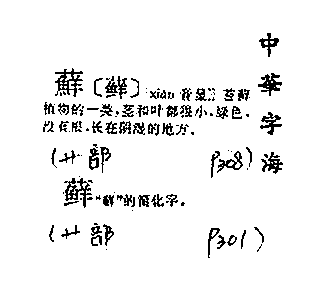 中華字海
蘚〔藓〕xiǎn 音显 苔藓
植物的一类,茎和叶都很小,绿色,
没有根,长在阴湿的地方。
(艹部 P308)
藓 “蘚”的简化字。
(艹部 P301)